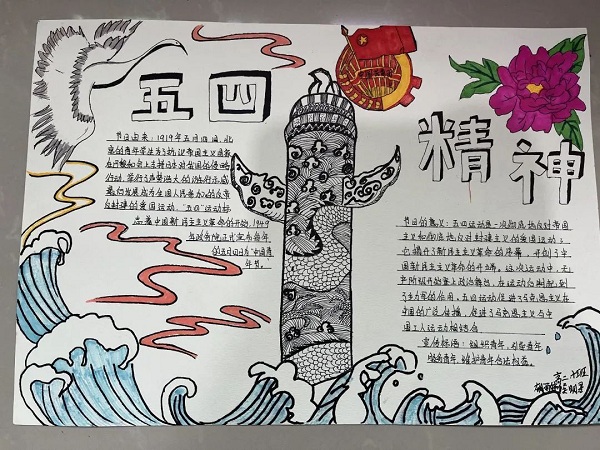 五四
精神
节日由来：1919年五月四日，北
京的青年学生为了抗议帝国主义国家
在
上支持日本对我国的侵略
行动，举行了声势浩大的游行示威
最终发展成为全国人民参加的反帝
反封建的爱国运动，"五四"运动标
志着中国新民主主义革命的开始，1949
政务院正式宣布每年
的五月四日为"中国青
年节。
节日的意义：五四运动是一次彻底地反对帝国
主义和彻底地反对封建主义的爱国运动；
它揭开了新民主主义革命的序幕，开创了中
国新民主主义革命的
这次运动中，无
产阶级开始登上政治舞台，在运动
到
了主力军的作用。五四运动促进了马克思主义在
中国的广泛传播，促进了马克思主义与中
国工人运动相结合
宣传标语：维护青年，
青年
服务青年，维护青年合法权益。
高二
班